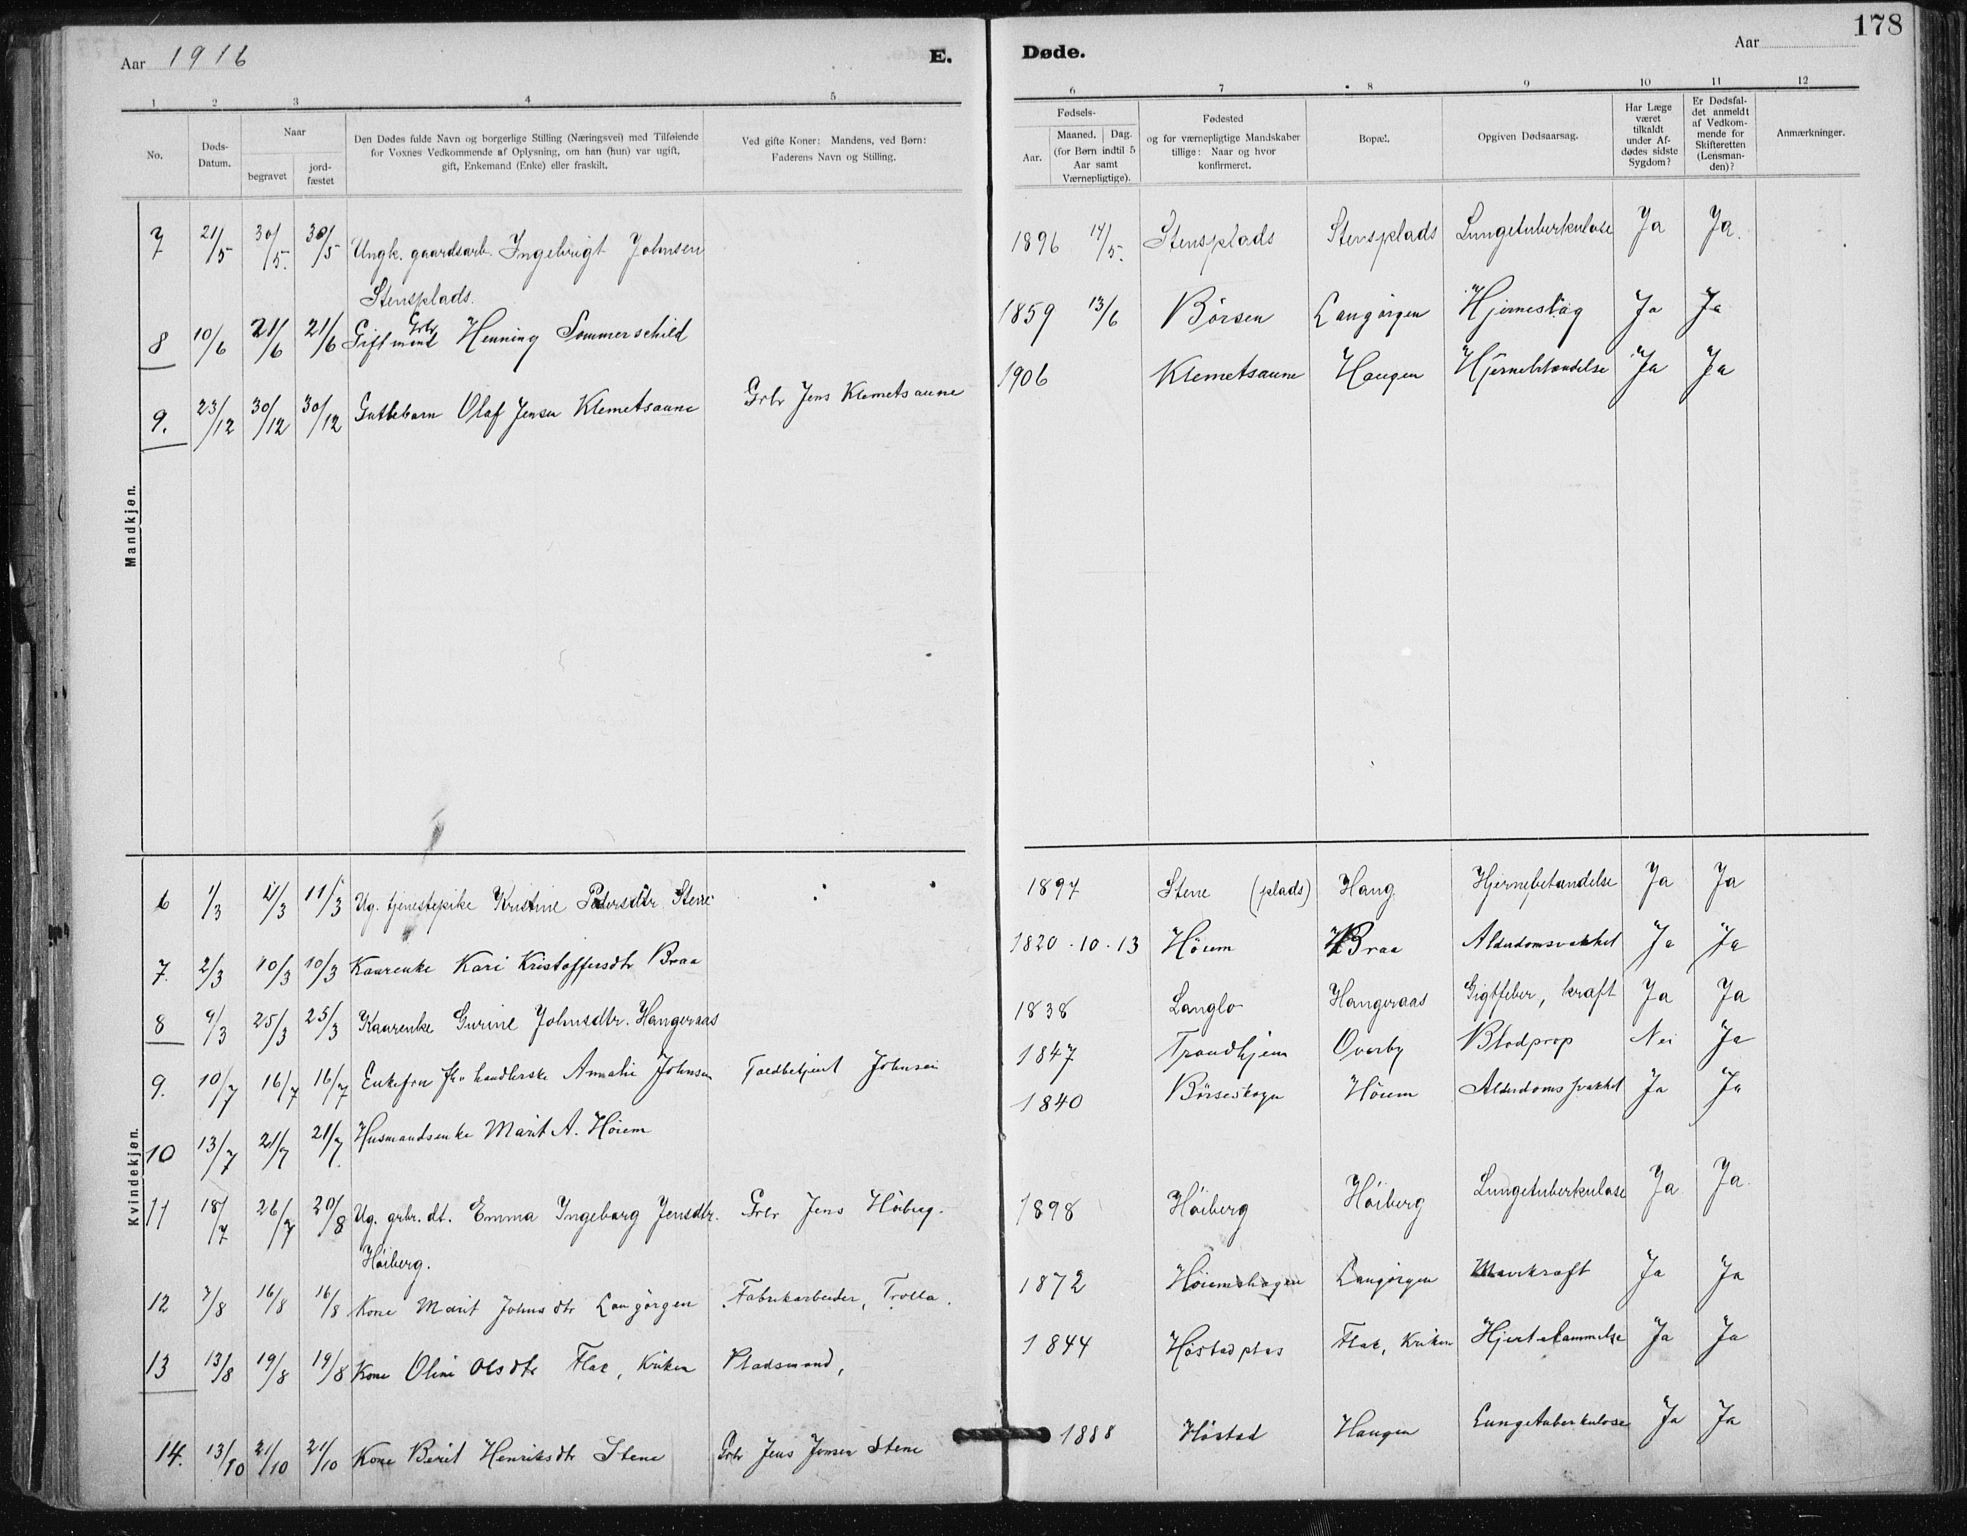 178
Aar 1916 E. Døde. Aar
1 2 3 4 5 6 7 8 9 10 11 12
No. Døds-Datum. Naar begravet jord-fæstet Den Dødes fulde Navn og borgerlige Stilling (Næringsvei) med Tilføiende for Voxnes Vedkommende af Oplysning, om han (hun) var ugift, gift, Enkemand (Enke) eller fraskilt. Ved gifte Koner: Mandens, ved Børn: Faderens Navn og Stilling. Fødsels- Aar. Maaned. Dag. (for Børn indtil 5 Aar samt Værnepligtige). Fødested og for værnepligtige Mandskaber tillige: Naar og hvor konfirmeret. Bopæl. Opgiven Dødsaarsag. Har Læge været tilkaldt under Afdødes sidste Sygdom? Er Dødsfaldet anmeldt af Vedkommende for Skifteretten (Lensmanden)? Anmærkninger.
Mandkjøn.
7 21/5 30/5. 30/5 Ungk. gaardsarb. Ingebrigt Johnsen 1896 14/5. Stensplads Stensplads Lungetuberkulose Ja Ja.
Stensplads.
8 10/6 21/6 21/6 Gift mand Grbr Henning Sommerschild 1859 13/6 Börsen Langörgen Hjerneslag Ja Ja
9. 23/12 30/12 30/12 Guttebarn Olaf Jensen Klemetsaune Grbr Jens Klemetsaune 1906 Klemetsaune Haugen Hjernebetændelse Ja Ja
Kvindekjøn.
6 1/3 11/3 11/3 Ug. tjenestepike Kristine Pedersdtr Stene 1897 Stene (plads) Haug Hjernebetændelse Ja Ja
7. 2/3 10/3 10/3 Kaarenke Kari Kristoffersdtr Braa 1820 . 10 . 13 Höiem Braa Alderdomsvakhet Ja Ja
8 9/3 25/3 25/3 Kaarenke Gurine Johnsdtr. Hangeraas 1838 Langlo Hangeraas Gigtfeber, kraft Ja Ja
9. 10/7 16/7 16/7 Enkefru handlerske Amalie Johnsen Toldbetjent Johnsen 1847 Trondhjem Overby Blodprop Nei Ja
10 13/7 21/7 21/7. Husmandsenke Marit A. Höiem 1840 Börseskogn Höiem Alderdomssvakhet Ja Ja
11 18/7 26/7 20/8 Ug. grbr. dt. Emma Ingeborg Jensdtr. Grbr Jens Höiberg. 1898 Höiberg Höiberg Lungetuberkulose Ja Ja.
Höiberg.
12 7/8 16/8 16/8 Kone Marit Johnsdtr Langörgen Fabrikarbeider, Trolla. 1872 Höiemshagen Langörgen Mavekraft Ja Ja
13 13/8 19/8 19/8 Kone Oline Olsdtr Flaa, Kviken Pladsmand, 1844 Höstadplas Flaa, Kviken Hjertelammelse Ja Ja
14. 13/10 21/10 21/10 Kone Berit Henriksdtr Stene Grbr Jens Jensen Stene 1888 Höstad Haugen Lungetuberkulose Ja Ja